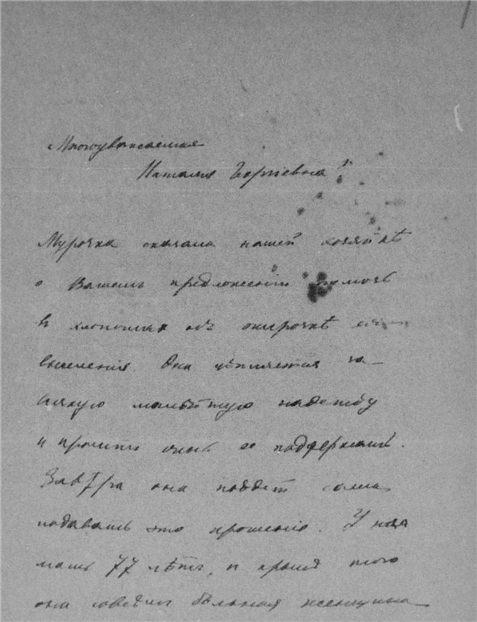 Многоуважаемая
Наталья Сергѣевна!
Мурочка сказала нашей хозяйкѣ
о Вашемъ предложеніи помочь
въ хлопотахъ объ отсрочкѣ
выселенія. Она цѣпляется за
всякую малѣйшую надежду
и проситъ очень ее поддержать.
Завтра она пойдетъ сама
подавать это прошеніе. У нея
мать 77 лѣтъ, и кромѣ того
она совсѣмъ больная женщина